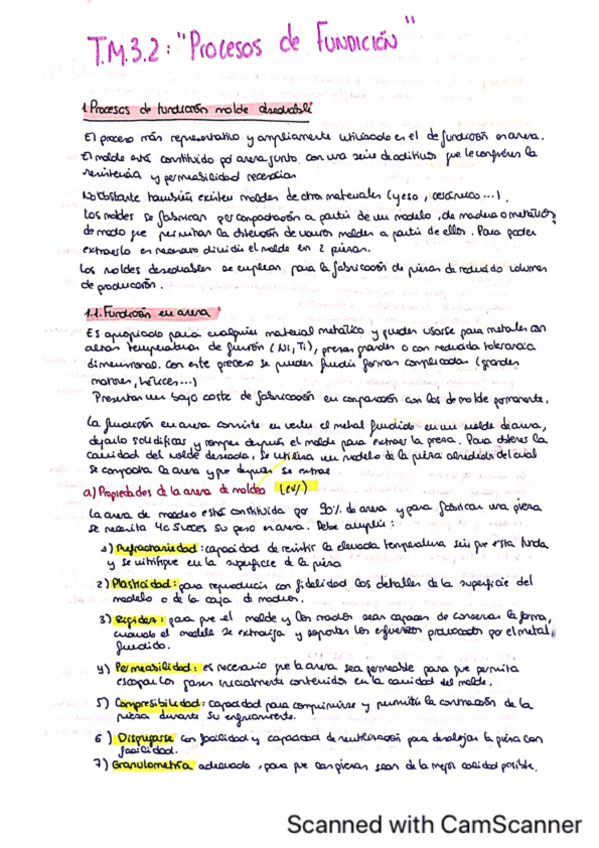 T.M.3.2: "Procesos de FUNDICIÓN"
1. Procesos de fundición molde desechable
El proceso más representativo y ampliamente utilizado es el de fundición en arena.
El molde está constituido por arena junto con una serie de aditivos que le confieren la
resistencia y permeabilidad necesarias
No obstante también existen moldes de otros materiales (yeso, cerámico...).
Los moldes se fabrican por compactación a partir de un modelo, de madera o metálico,
de modo que permitan la obtención de varios moldes a partir de ellos. Para poder
extraerlo es necesario dividir el molde en 2 piezas.
Los moldes desechables se emplean para la fabricación de piezas de reducido volumen
de producción.
1.1. Fundición en arena
Es apropiado para cualquier material metálico y pueden usarse para metales con
altas temperaturas de fusión (Ni, Ti), piezas grandes o con reducida tolerancia
dimensional. Con este proceso se pueden fundir formas complicadas (grandes
motores, hélices...)
Presentan un bajo coste de fabricación en comparación con los de molde permanente.
La fundición en arena consiste en verter el metal fundido en un molde de arena,
dejarlo solidificar y romper después el molde para extraer la pieza. Para obtener la
cavidad del molde deseada, se utiliza un modelo de la pieza alrededor del cual
se compacta la arena y que después se retira
a) Propiedades de la arena de moldeo (ex!)
La arena de moldeo está constituida por 90% de arena y para fabricar una pieza
se necesita 40 veces su peso en arena. Debe cumplir:
1) Refractariedad: capacidad de resistir la elevada temperatura sin que esta funda
y se vitrifique en la superficie de la pieza
2) Plasticidad: para reproducir con fidelidad los detalles de la superficie del
modelo o de la caja de machos.
3) Rigidez: para que el molde y los machos sean capaces de conservar la forma,
cuando el modelo se extraiga y soportar los esfuerzos provocados por el metal
fundido.
4) Permeabilidad: es necesario que la arena sea permeable para que permita
escapar los gases inicialmente contenidos en la cavidad del molde.
5) Compresibilidad: capacidad para comprimirse y permitir la contracción de la
pieza durante su enfriamiento.
6) Disgregarse con facilidad y capacidad de reutilización para desalojar la pieza con
facilidad.
7) Granulometría adecuada, para que las piezas sean de la mejor calidad posible.
Scanned with CamScanner